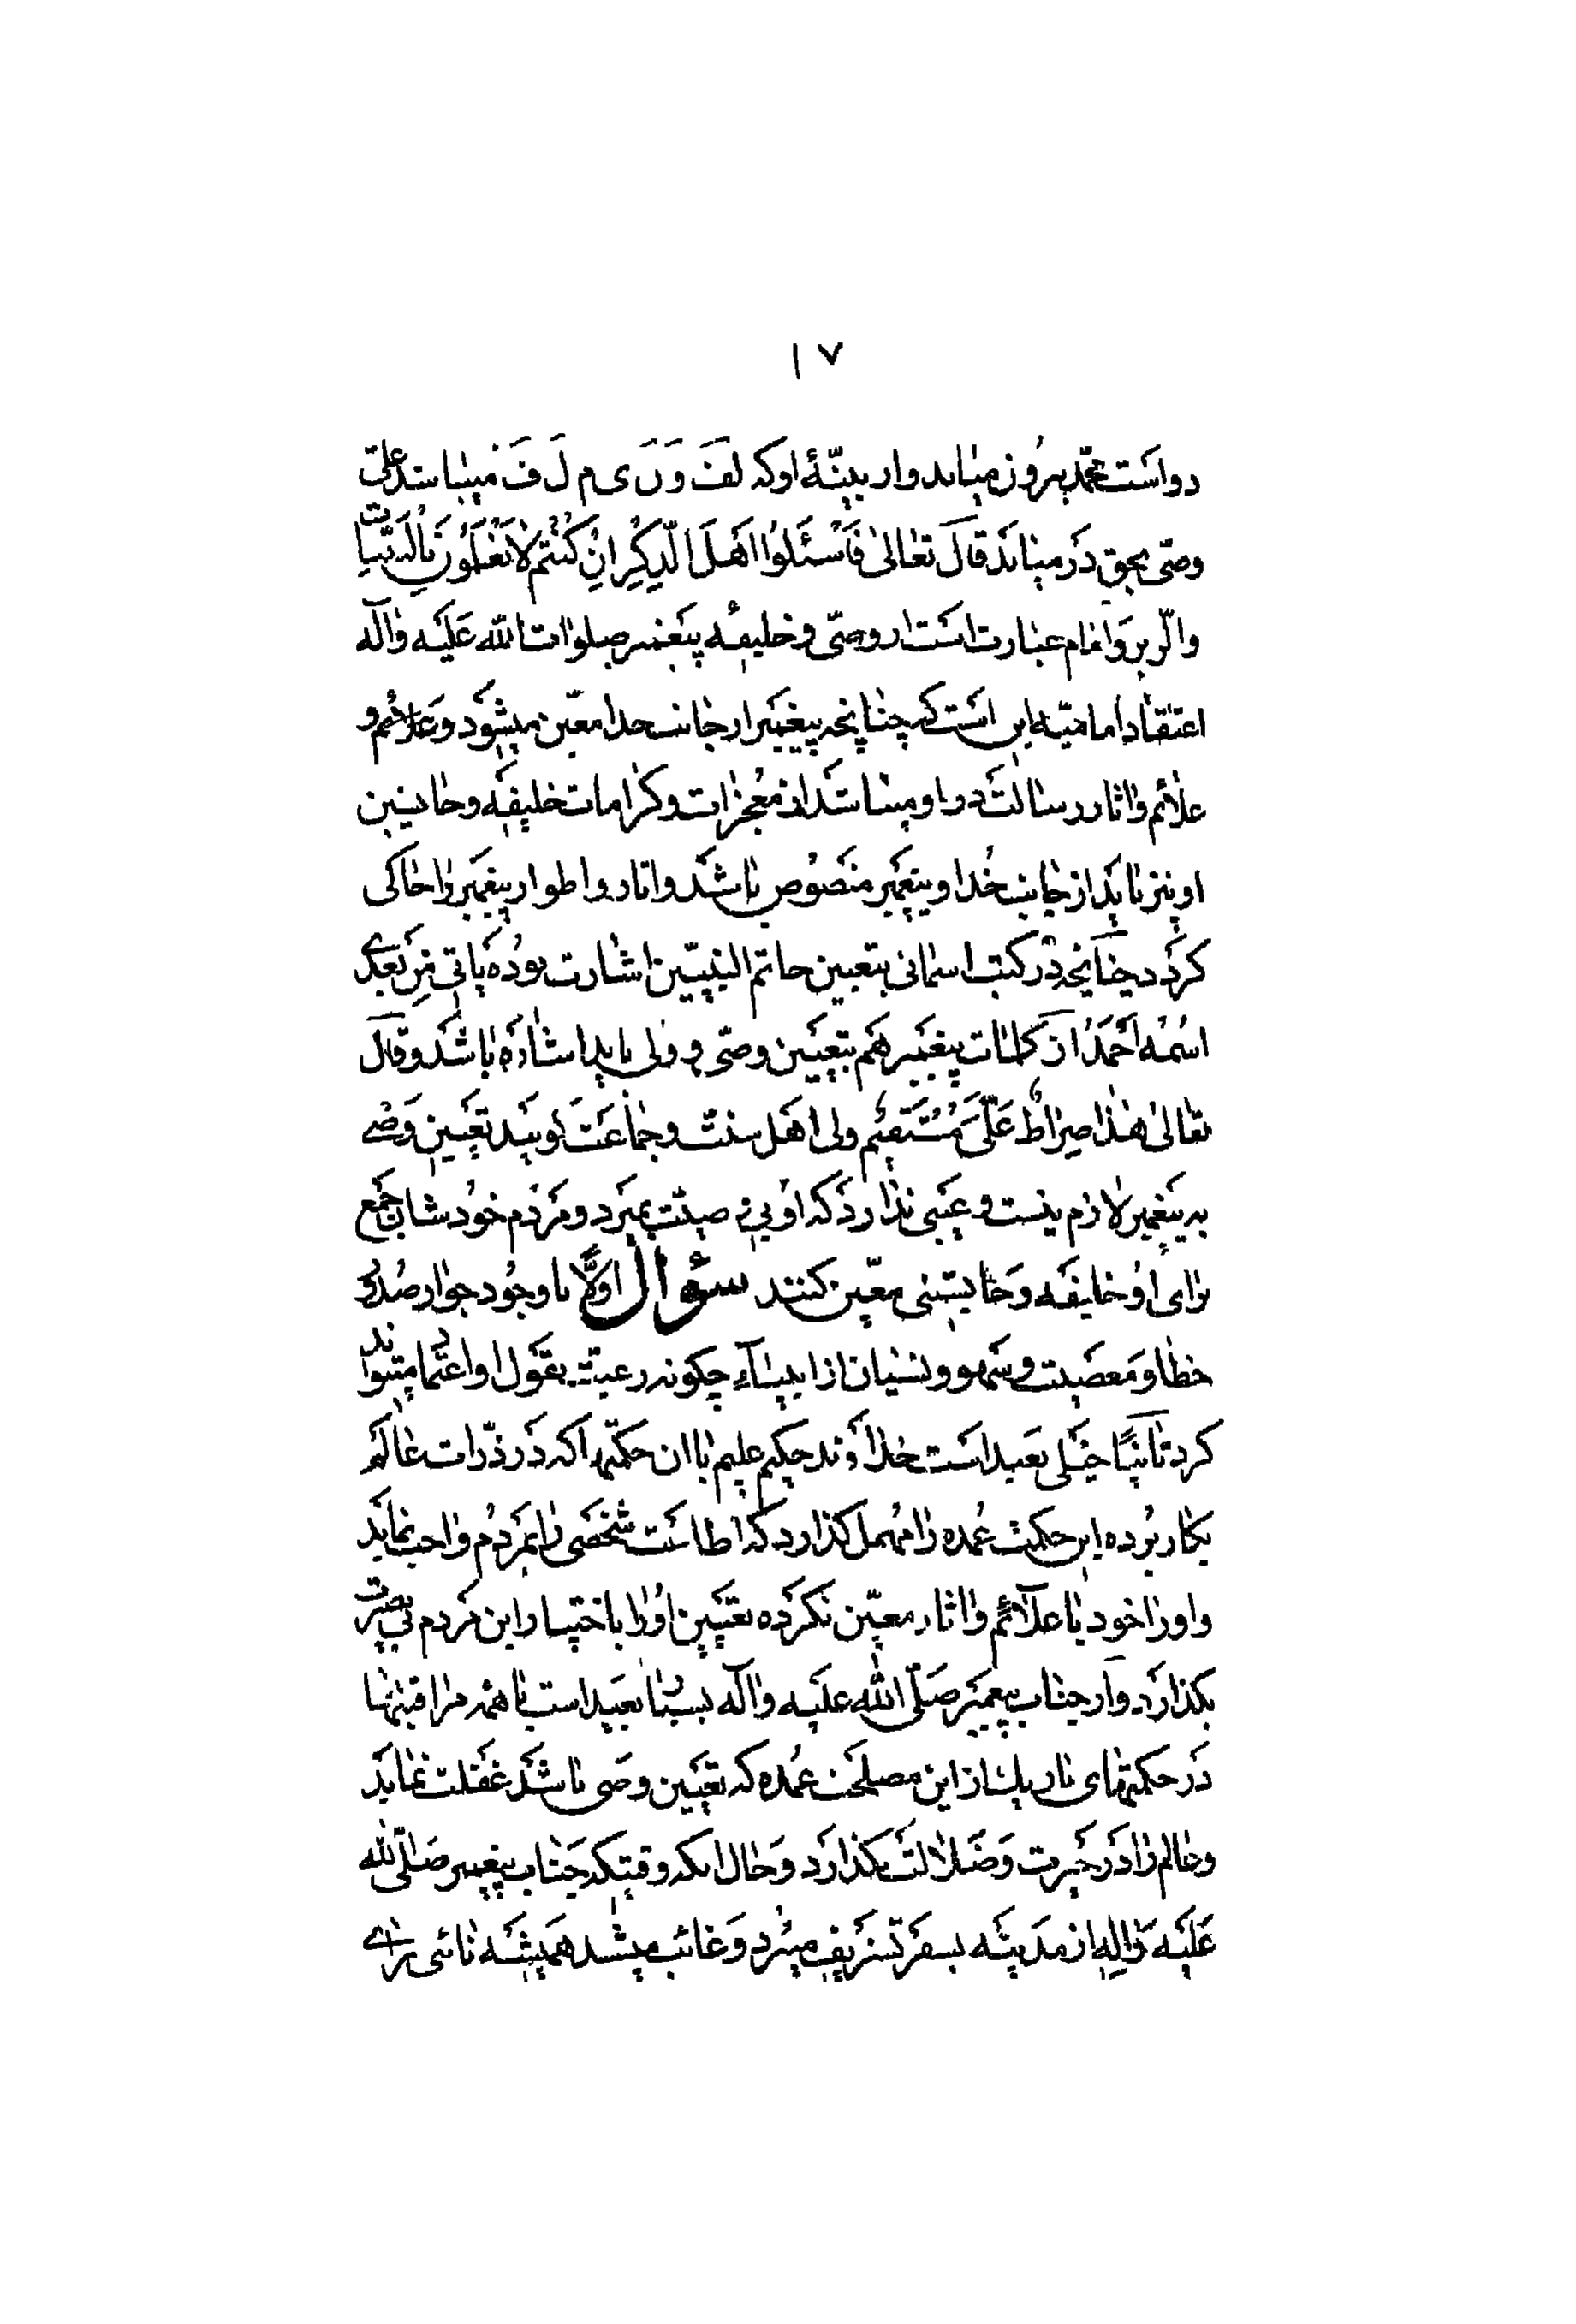 ١٧
دو است محمد بیرون میاید و از بینهٔ او که لف و ن ی م ل ف میباشد علی
وصی بحق در میاید قال تعالی فَاسْئَلُوا اَهْلَ الذِّکْرِ اِنْ کُنْتُمْ لاتَعْلَمُونَ بِالْبَیِّناتِ
والزبر و امام عبارت است از وصی و خلیفه پیغمبر صلوات الله علیه واله
اعتقاد امامیّه این است که چنانچه پیغمبر از جانب خدا معیّن میشود و علائم و
علائم و اثار رسالت در او میباشد از معجزات و کرامات خلیفه و جانشین
او نیز باید از جانب خدا و پیغمبر منصوص باشد و اثار و اطوار پیغمبر را حاکی
کردد چنانچه در کتب اسمانی بتعیین خاتم النبیّین اشارت بوده یاتی من بعدی
اسْمُهُ اَحْمَدُ از کلمات پیغمبر هم بتعیین وصی و ولی باید اشاره باشد و قال
تعالی هٰذا صِراطٌ عَلَیَّ مُسْتَقیم ولی اهل سنت و جماعت کویند تعیین وصی
به پیغمبر لازم نیست و عیبی ندارد که او بی وصیّت بمیرد و مردم خودشان جمع
برای او خلیفه و جانشینی معیّن کنند سؤال اولًا با وجود جواز صدور
خطا و معصیت و سهو و نسیان از انبیاء چکونه رعیت بقول او اعتماد میتوانند
کرد ثانیًا خیلی بعید است خداوند حکیم علیم باان حکمتها که در ذرّات عالم
بکار برده این حکمت عمده را مهمل کذارد که اطاعت شخصی را بمردم واجب نماید
و او را خود با علائم و اثار معیّن نکرده تعیین او را باختیار این مردم بی بصیرت
بکذارد و از جناب پیغمبر صلّی الله علیه واله بسیار بعید است با همه مراقبتها
در حکمتهای باریک از این مصلحت عمده که تعیین وصی باشد غفلت نماید
و عالم را در حیرت و ضلالت بکذارد و حال انکه وقتیکه جناب پیغمبر صلّی الله
علیه واله از مدینه بسفر تشریف میبرد و غائب میشد همیشه نائبی برای